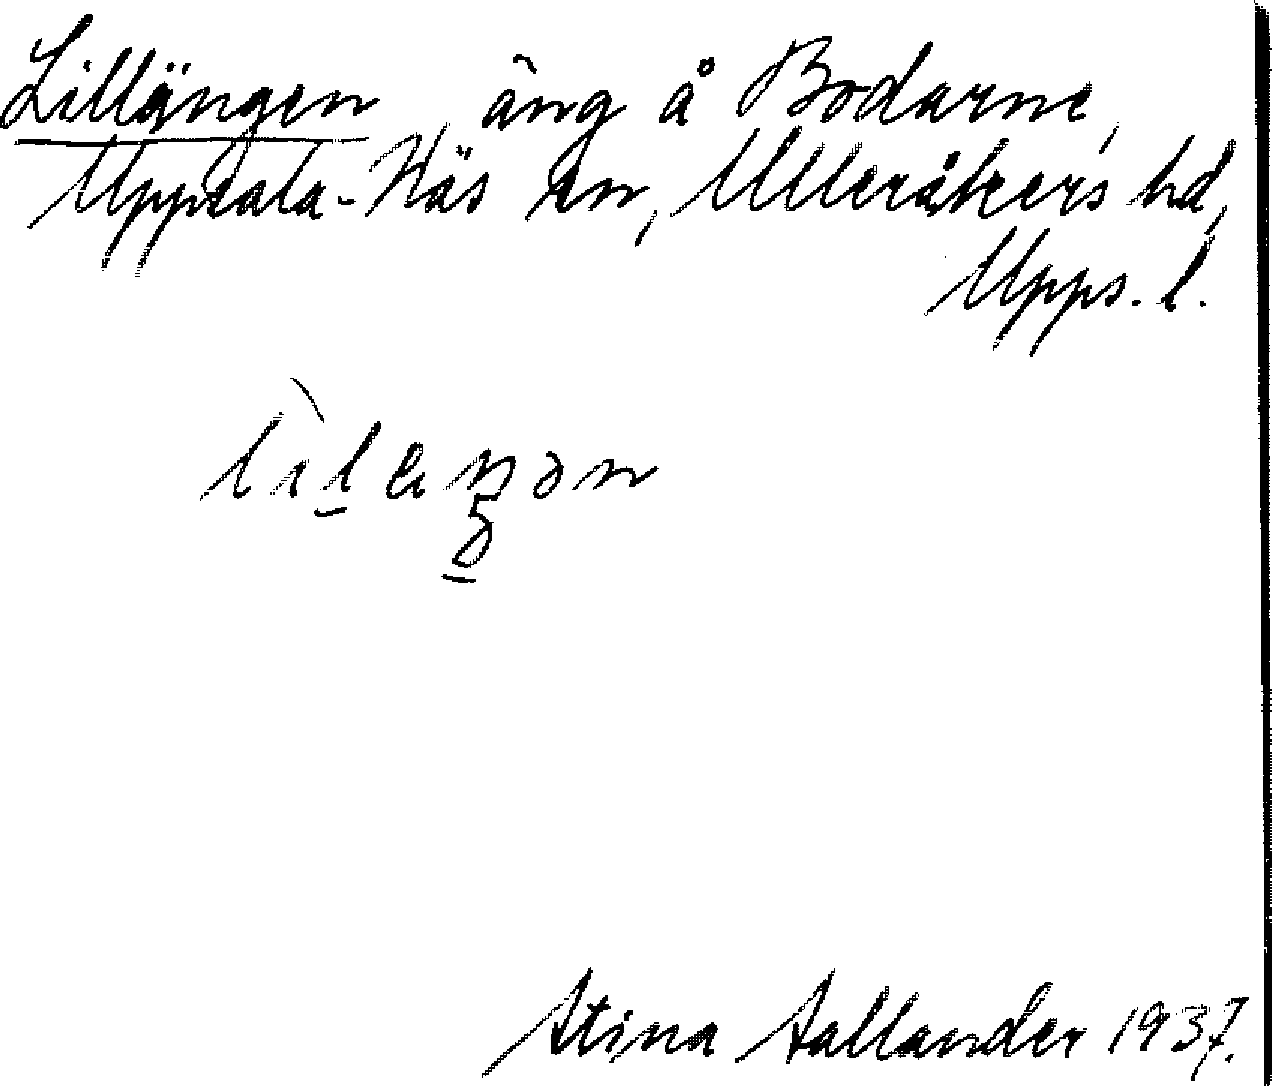 Lillängen, äng å Bodarne,
Uppsala-Näs sn, Ulleråkers hd,
Upps. l.
Stina Sallander 1937.